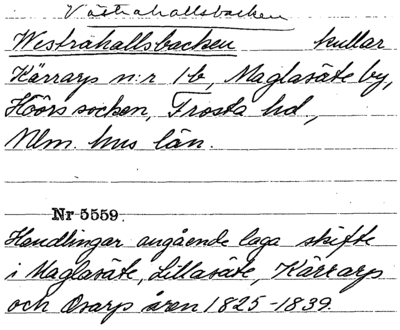 Västrahallsbacken
Westrahallsbacken kullar
Kärrarp n:r 1b, Maglasäte by,
Höörs socken, Frosta hd,
Mlm. hus län.
Nr 5559.
Handlingar angående laga skifte
i Maglasäte, Lillasäte, Kärrarp
och Osarp åren 1825-1839.